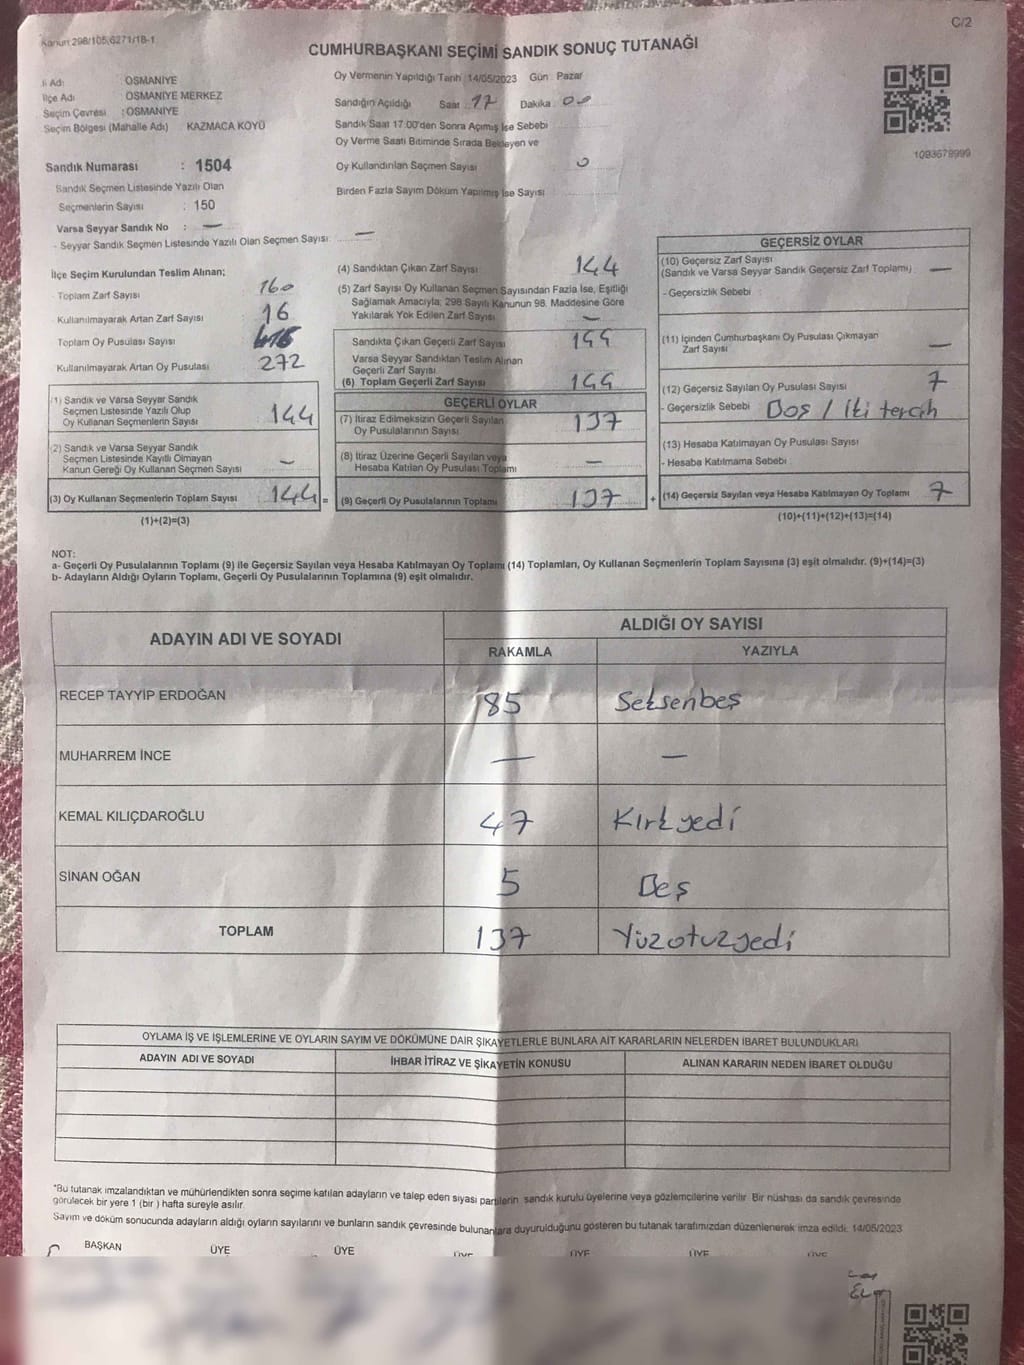 Kanun:298/105,6271/18-1
C/2
CUMHURBAŞKANI SEÇİMİ SANDIK SONUÇ TUTANAĞI
İl Adı : OSMANİYE
İlçe Adı : OSMANİYE MERKEZ
Seçim Çevresi : OSMANİYE
Seçim Bölgesi (Mahalle Adı) KAZMACA KÖYÜ
Oy Vermenin Yapıldığı Tarih :14/05/2023 Gün : Pazar
Sandığın Açıldığı Saat : 17 Dakika : 00
Sandık Saat 17:00'den Sonra Açımış İse Sebebi
Oy Verme Saati Bitiminde Sırada Bekleyen ve
Oy Kullandırılan Seçmen Sayısı 0
Birden Fazla Sayım Döküm Yapılmış İse Sayısı
1093679999
Sandık Numarası : 1504
Sandık Seçmen Listesinde Yazılı Olan
Seçmenlerin Sayısı : 150
Varsa Seyyar Sandık No : —
- Seyyar Sandık Seçmen Listesinde Yazılı Olan Seçmen Sayısı: —
İlçe Seçim Kurulundan Teslim Alınan;
- Toplam Zarf Sayısı 160
- Kullanılmayarak Artan Zarf Sayısı 16
Toplam Oy Pusulası Sayısı
- Kullanılmayarak Artan Oy Pusulası 272
(1) Sandık ve Varsa Seyyar Sandık
Seçmen Listesinde Yazılı Olup
Oy Kullanan Seçmenlerin Sayısı 144
(2) Sandık ve Varsa Seyyar Sandık
Seçmen Listesinde Kayıtlı Olmayan
Kanun Gereği Oy Kullanan Seçmen Sayısı —
(3) Oy Kullanan Seçmenlerin Toplam Sayısı 144 =
(1)+(2)=(3)
(4) Sandıktan Çıkan Zarf Sayısı 144
(5) Zarf Sayısı Oy Kullanan Seçmen Sayısından Fazla İse, Eşitliği
Sağlamak Amacıyla, 298 Sayılı Kanunun 98. Maddesine Göre
Yakılarak Yok Edilen Zarf Sayısı —
Sandıkta Çıkan Geçerli Zarf Sayısı 144
Varsa Seyyar Sandıktan Teslim Alınan
Geçerli Zarf Sayısı
(6) Toplam Geçerli Zarf Sayısı 144
GEÇERLİ OYLAR
(7) İtiraz Edilmeksizin Geçerli Sayılan
Oy Pusulalarının Sayısı 137
(8) İtiraz Üzerine Geçerli Sayılan veya
Hesaba Katılan Oy Pusulası Toplamı —
(9) Geçerli Oy Pusulalarının Toplamı 137 +
GEÇERSİZ OYLAR
(10) Geçersiz Zarf Sayısı
(Sandık ve Varsa Seyyar Sandık Geçersiz Zarf Toplamı) —
- Geçersizlik Sebebi :
(11) İçinden Cumhurbaşkanı Oy Pusulası Çıkmayan
Zarf Sayısı —
(12) Geçersiz Sayılan Oy Pusulası Sayısı 7
- Geçersizlik Sebebi Boş / iki tercih
(13) Hesaba Katılmayan Oy Pusulası Sayısı
- Hesaba Katılmama Sebebi :
(14) Geçersiz Sayılan veya Hesaba Katılmayan Oy Toplamı 7
(10)+(11)+(12)+(13)=(14)
NOT:
a- Geçerli Oy Pusulalarının Toplamı (9) ile Geçersiz Sayılan veya Hesaba Katılmayan Oy Toplamı (14) Toplamları, Oy Kullanan Seçmenlerin Toplam Sayısına (3) eşit olmalıdır. (9)+(14)=(3)
b- Adayların Aldığı Oyların Toplamı, Geçerli Oy Pusulalarının Toplamına (9) eşit olmalıdır.
ADAYIN ADI VE SOYADI
ALDIĞI OY SAYISI
RAKAMLA YAZIYLA
RECEP TAYYİP ERDOĞAN 85 Seksenbeş
MUHARREM İNCE — —
KEMAL KILIÇDAROĞLU 47 Kırkyedi
SİNAN OĞAN 5 Beş
TOPLAM 137 Yüzotuzyedi
OYLAMA İŞ VE İŞLEMLERİNE VE OYLARIN SAYIM VE DÖKÜMÜNE DAİR ŞİKAYETLERLE BUNLARA AİT KARARLARIN NELERDEN İBARET BULUNDUKLARI
ADAYIN ADI VE SOYADI İHBAR İTİRAZ VE ŞİKAYETİN KONUSU ALINAN KARARIN NEDEN İBARET OLDUĞU
*Bu tutanak imzalandıktan ve mühürlendikten sonra seçime katılan adayların ve talep eden siyasi partilerin sandık kurulu üyelerine veya gözlemcilerine verilir. Bir nüshası da sandık çevresinde
görülecek bir yere 1 (bir) hafta süreyle asılır.
Sayım ve döküm sonucunda adayların aldığı oyların sayılarını ve bunların sandık çevresinde bulunanlara duyurulduğunu gösteren bu tutanak tarafımızdan düzenlenerek imza edildi. 14/05/2023
BAŞKAN ÜYE ÜYE ÜYE ÜYE ÜYE ÜYE